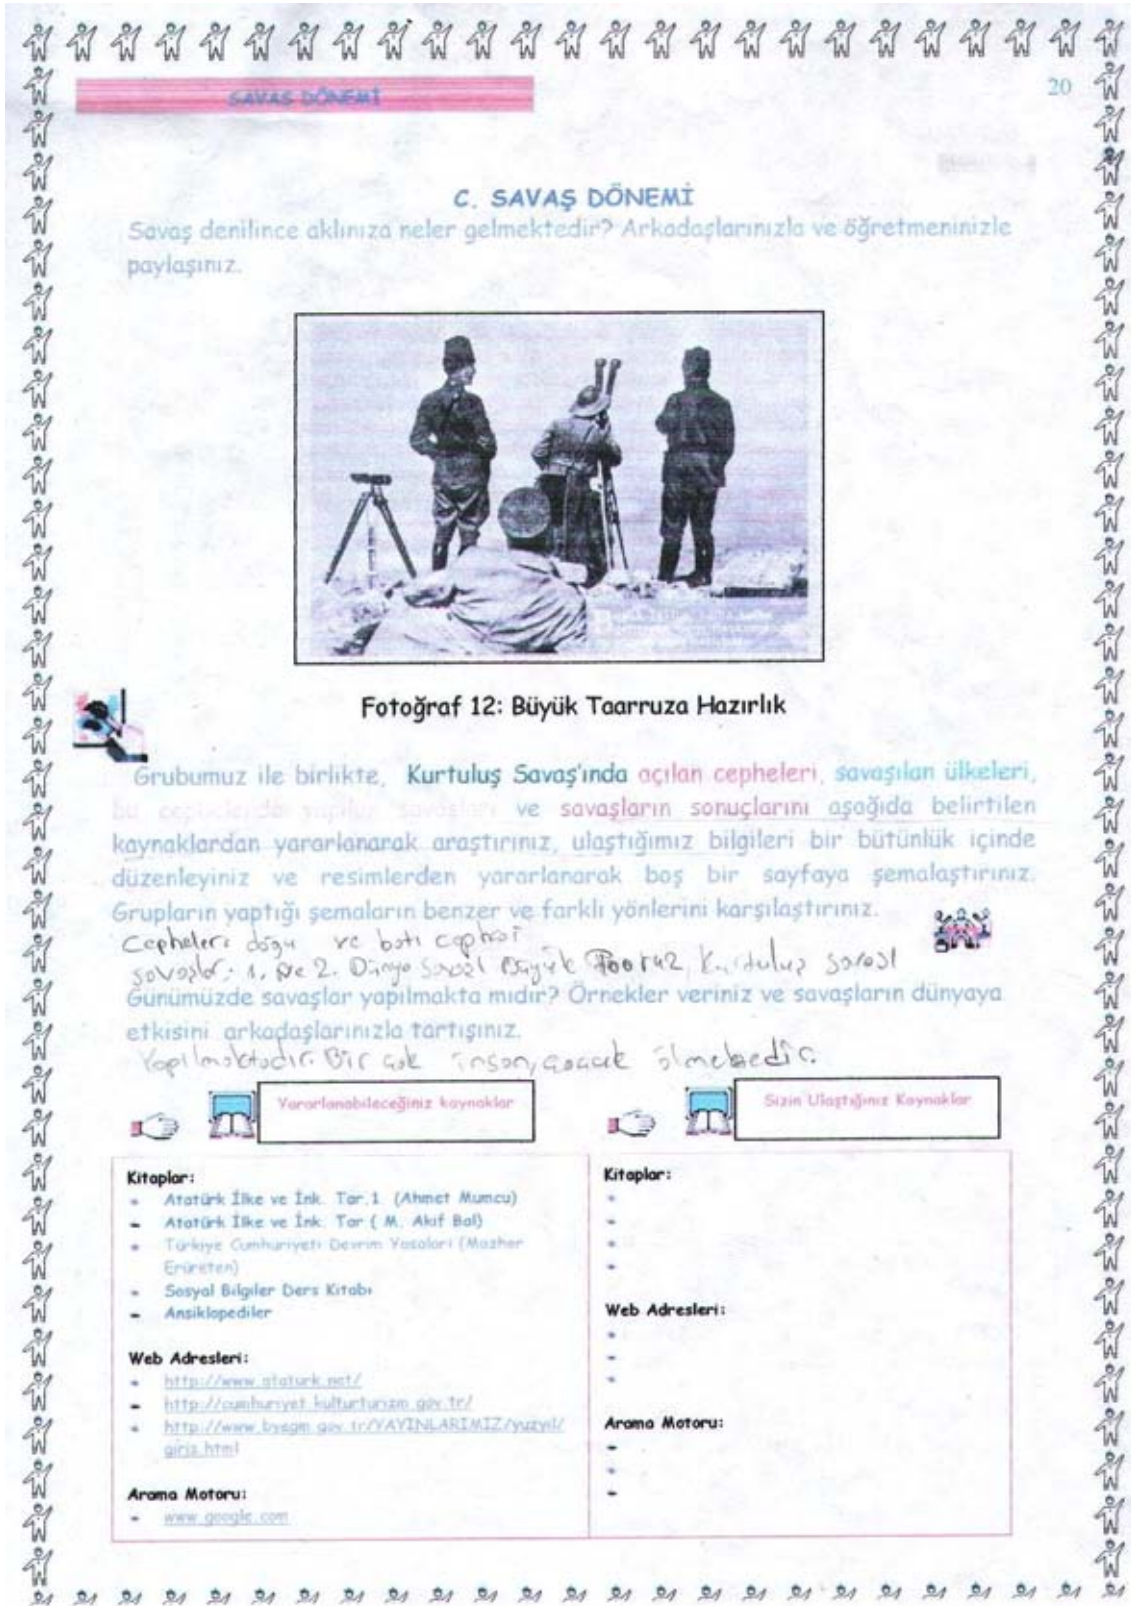 SAVAŞ DÖNEMİ
20
C. SAVAŞ DÖNEMİ
Savaş denilince aklınıza neler gelmektedir? Arkadaşlarınızla ve öğretmeninizle
paylaşınız.
Fotoğraf 12: Büyük Taarruza Hazırlık
Grubumuz ile birlikte, Kurtuluş Savaş'ında açılan cepheleri, savaşılan ülkeleri,
bu cephelerde yapılan savaşları ve savaşların sonuçlarını aşağıda belirtilen
kaynaklardan yararlanarak araştırınız, ulaştığımız bilgileri bir bütünlük içinde
düzenleyiniz ve resimlerden yararlanarak boş bir sayfaya şemalaştırınız.
Grupların yaptığı şemaların benzer ve farklı yönlerini karşılaştırınız.
Cepheleri doğu ve batı cephesi
savaşlar: 1. ve 2. Dünya Savaşı Büyük Kurtuluş savaşı
Günümüzde savaşlar yapılmakta mıdır? Örnekler veriniz ve savaşların dünyaya
etkisini arkadaşlarınızla tartışınız.
Yapılmaktadır. Bir çok insan, çocuk ölmektedir.
Yararlanabileceğiniz kaynaklar
Kitaplar:
- Atatürk İlke ve İnk. Tar.1 (Ahmet Mumcu)
- Atatürk İlke ve İnk. Tar ( M. Akif Bal)
- Türkiye Cumhuriyeti Devrim Yasaları (Mazher
Erüreten)
- Sosyal Bilgiler Ders Kitabı
- Ansiklopediler
Web Adresleri:
- http://www.ataturk.net/
- http://cumhuriyet.kulturturizm.gov.tr/
- http://www.byegm.gov.tr/YAYINLARIMIZ/yuzyil/
giris.html
Arama Motoru:
- www.google.com
Sizin Ulaştığınız Kaynaklar
Kitaplar:
Web Adresleri:
Arama Motoru: